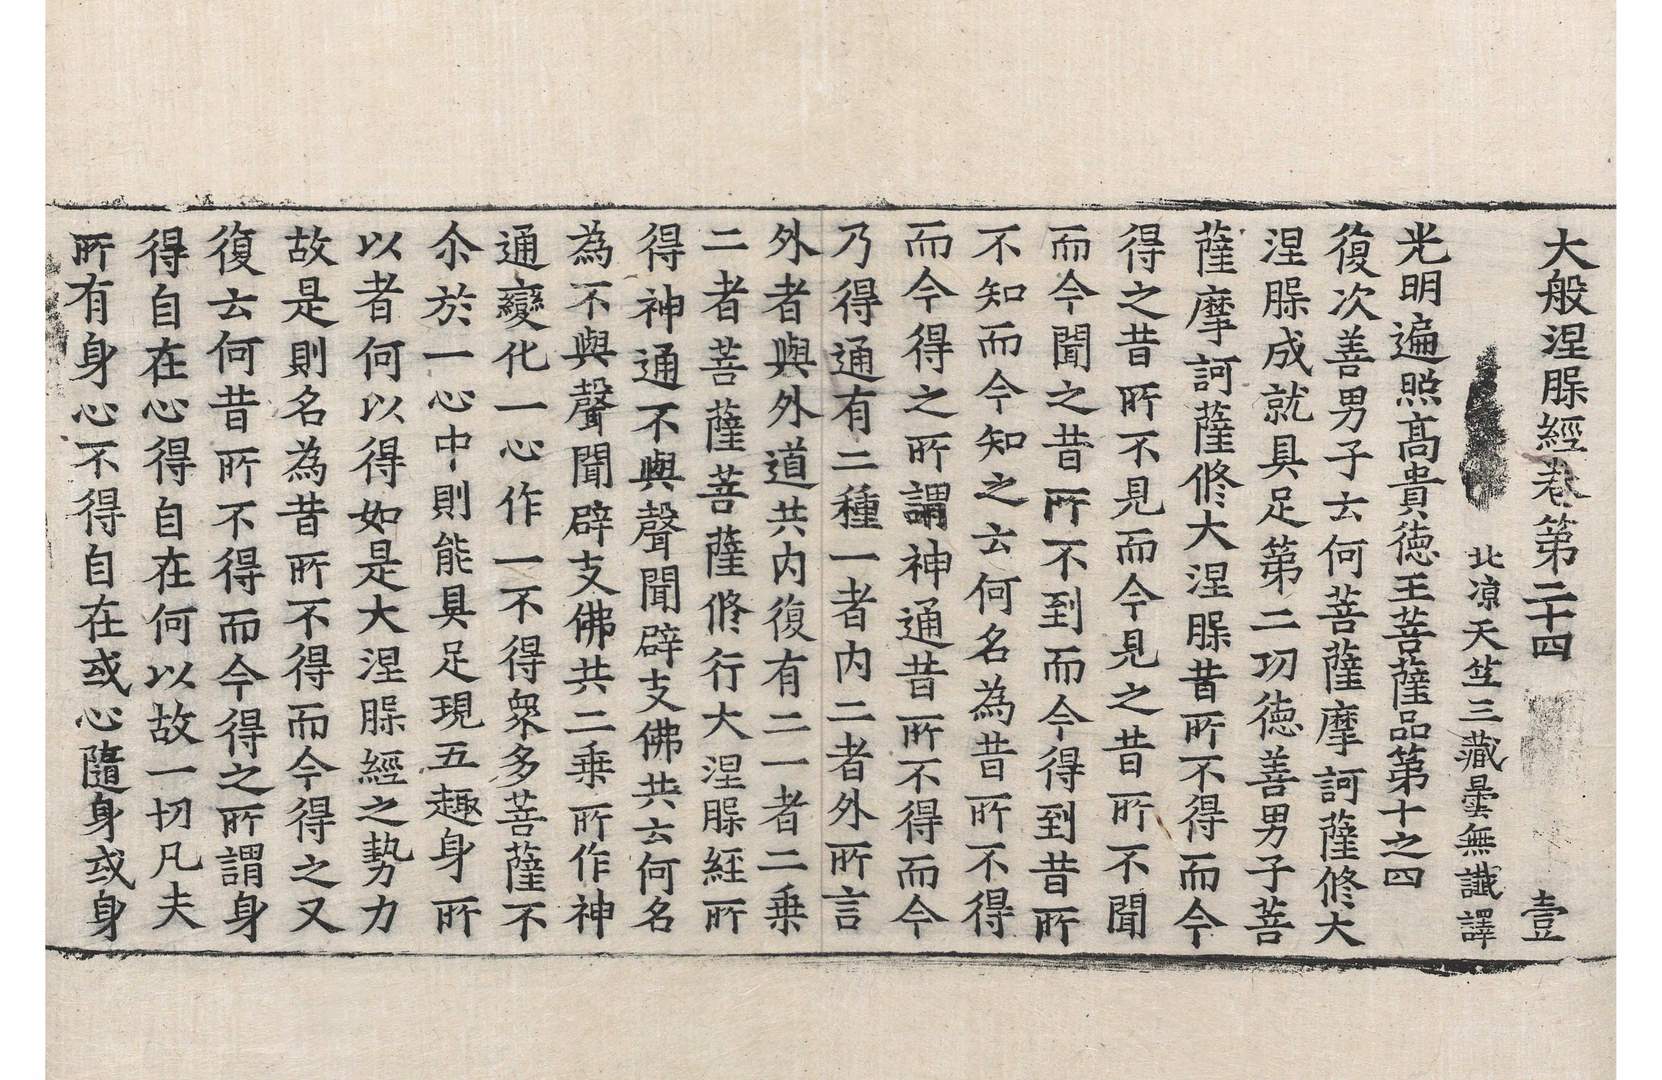 大般涅槃經卷第二十四 壹
北涼天竺三藏曇無讖譯
光明遍照髙貴徳王菩薩品第十之四
復次善男子云何菩薩摩訶薩修大
涅槃成就具足第二功徳善男子菩
薩摩訶薩修大涅槃昔所不得而今
得之昔所不見而今見之昔所不聞
而今聞之昔所不到而今得到昔所
不知而今知之云何名為昔所不得
而今得之所謂神通昔所不得而今
乃得通有二種一者内二者外所言
外者與外道共内復有二一者二乗
二者菩薩菩薩修行大涅槃経所
得神通不與聲聞辟支佛共云何名
為不與聲聞辟支佛共二乗所作神
通變化一心作一不得衆多菩薩不
尒於一心中則能具足現五趣身所
以者何以得如是大涅槃經之勢力
故是則名為昔所不得而今得之又
復云何昔所不得而今得之所謂身
得自在心得自在何以故一切凡夫
所有身心不得自在或心隨身或身